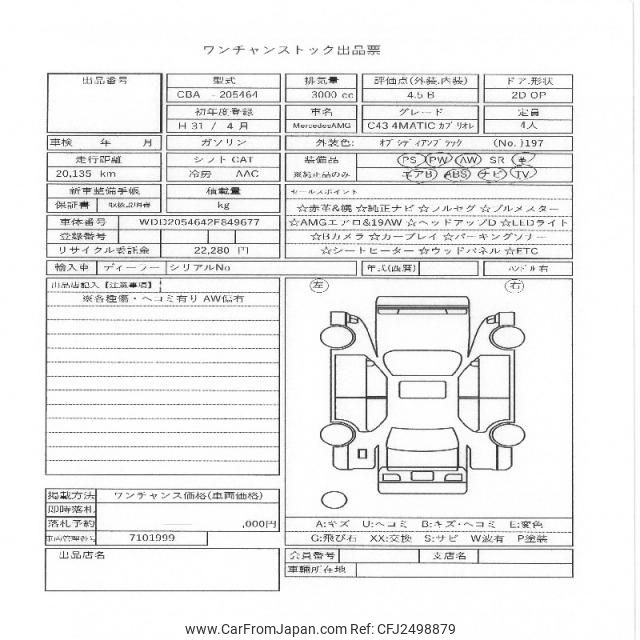 ワンチャンストック出品票
出品番号 型式 排気量 評価点(外装.内装) ドア.形状
CBA - 205464 3000 cc 4.5 B 2D OP
初年度登録 車名 グレード 定員
H 31 / 4 月 MercedesAMG C43 4MATIC カブリオレ 4人
車検 年 月 ガソリン 外装色: オブシディアンブラック (No.)197
走行距離 シフト CAT 装備品 PS PW AW SR 革
20,135 km 冷房 AAC ※純正品のみ エアB ABS ナビ TV
新車整備手帳 積載量 セールスポイント
保証書 取扱説明書 kg ☆赤革&幌 ☆純正ナビ ☆フルセグ ☆ブルメスター
車体番号 WDD2054642F849677 ☆AMGエアロ&19AW ☆ヘッドアップD ☆LEDライト
登録番号 ☆Bカメラ ☆カープレイ ☆パーキングソナー
リサイクル委託金 22,280 円 ☆シートヒーター ☆ウッドパネル ☆ETC
輸入車 ディーラー シリアルNo 年式(西暦) ハンドル 右
出品店記入【注意事項】 左 右
※各種傷・ヘコミ有り AW傷有
掲載方法 ワンチャンス価格(車両価格)
即時落札
落札予約 ,000円
車両管理番号 7101999
A:キズ U:ヘコミ B:キズ・ヘコミ E:変色
G:飛び石 XX:交換 S:サビ W波有 P塗装
出品店名 会員番号 支店名
車輌所在地
www.CarFromJapan.com Ref: CFJ2498879